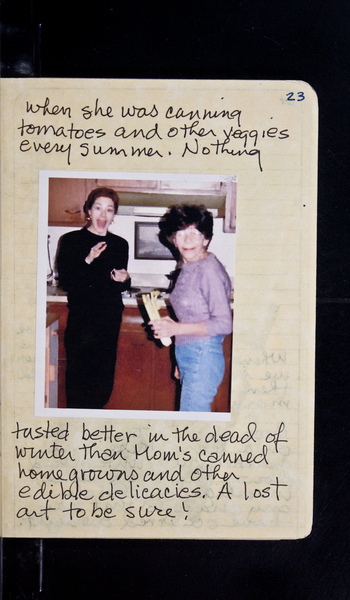 23
when she was canning
tomatoes and other veggies
every summer. Nothing
tasted better in the dead of
winter than Mom's canned
homegrowns and other
edible delicacies. A lost
art to be sure!